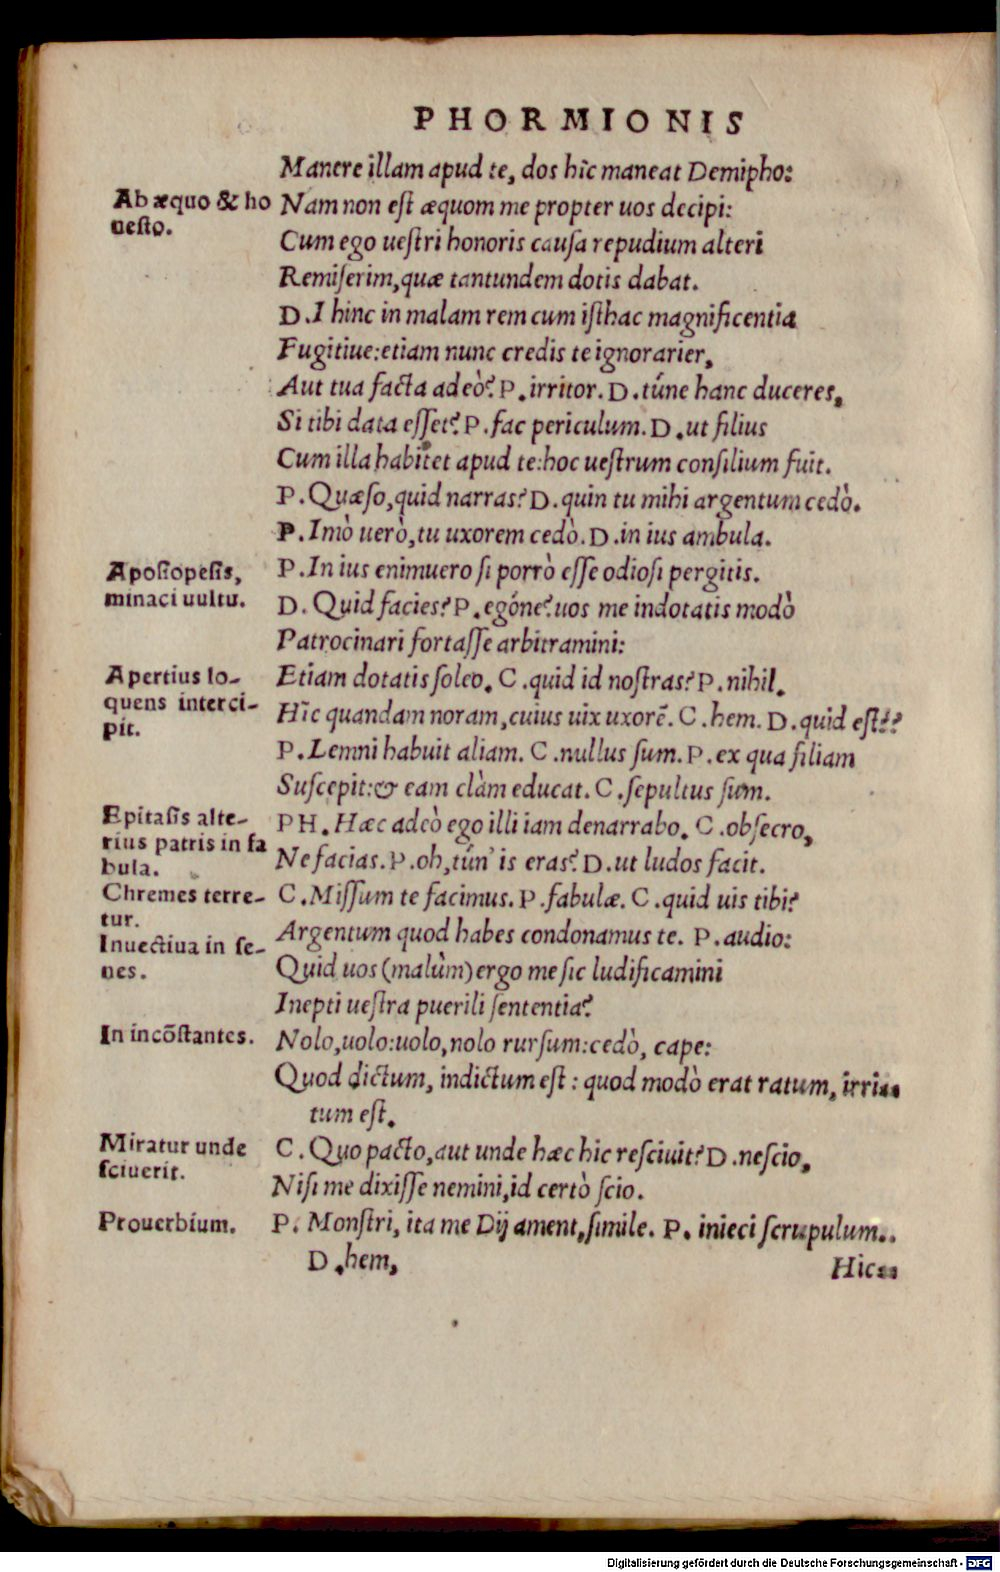 PHORMIONIS
Manere illam apud te, dos hîc maneat Demipho:
Ab æquo & ho
neſto.
Nam non eſt æquom me propter uos decipi:
Cum ego ueſtri honoris cauſa repudium alteri
Remiſerim, quæ tantundem dotis dabat.
D. I hinc in malam rem cum iſthac magnificentia
Fugitiue: etiam nunc credis te ignorarier,
Aut tua facta adeò? P. irritor. D. túne hanc duceres,
Si tibi data eſſet? P. fac periculum. D. ut filius
Cum illa habitet apud te: hoc ueſtrum conſilium fuit.
P. Quæſo, quid narras? D. quin tu mihi argentum cedò.
P. Imò uerò, tu uxorem cedò. D. in ius ambula.
Apoſiopeſis,
minaci uultu.
P. In ius enimuero ſi porrò eſſe odioſi pergitis.
D. Quid facies? P. egóne? uos me indotatis modò
Patrocinari fortaſſe arbitramini:
Apertius lo-
quens interci-
pit.
Etiam dotatis ſoleo. C. quid id noſtras? P. nihil.
Hîc quandam noram, cuius uix uxorē. C. hem. D. quid eſt??
P. Lemni habuit aliam. C. nullus ſum. P. ex qua filiam
Suſcepit: & eam clàm educat. C. ſepultus ſum.
Epitaſis alte-
rius patris in fa
bula.
PH. Hæc adeò ego illi iam denarrabo. C. obſecro,
Ne facias. P. oh, tún' is eras? D. ut ludos facit.
Chremes terre-
tur.
C. Miſſum te facimus. P. fabulæ. C. quid uis tibi?
Argentum quod habes condonamus te. P. audio:
Inuectiua in ſe-
nes.
Quid uos (malùm) ergo me ſic ludificamini
Inepti ueſtra puerili ſententia?
In incōſtantes.
Nolo, uolo: uolo, nolo rurſum: cedò, cape:
Quod dictum, indictum eſt: quod modò erat ratum, irri-
tum eſt.
Miratur unde
ſciuerit.
C. Quo pacto, aut unde hæc hic reſciuit? D. neſcio,
Niſi me dixiſſe nemini, id certò ſcio.
Prouerbium.
P. Monſtri, ita me Dij ament, ſimile. P. inieci ſcrupulum..
D. hem,
Hic
Digitalisierung gefördert durch die Deutsche Forschungsgemeinschaft - DFG